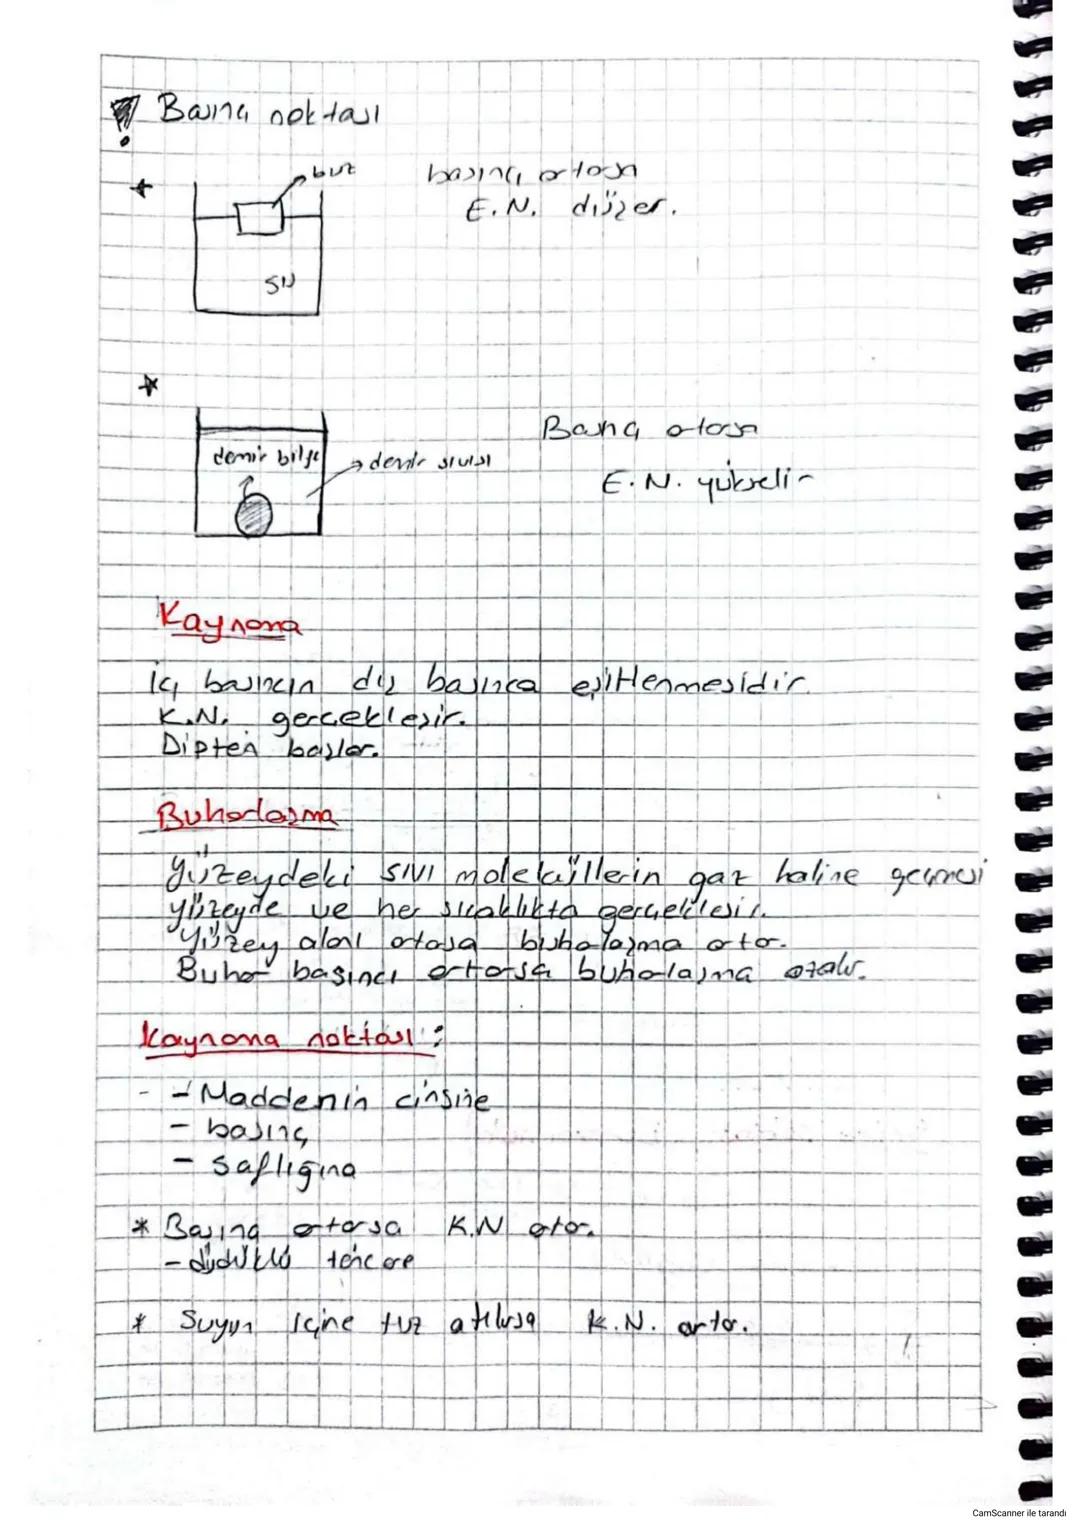 Basınç noktası
buz
basınç artarsa
E.N. düşer.
SIVI
Basınç artarsa
demir bilye
demir sıvısı
E.N. yükselir
Kaynama
İç basıncın dış basınca eşitlenmesidir.
K.N. gerçekleşir.
Dipten başlar.
Buharlaşma
Yüzeydeki sıvı moleküllerin gaz haline geçmesi
yüzeyde ve her sıcaklıkta gerçekleşir.
Yüzey alanı artarsa buharlaşma artar.
Buhar basıncı artarsa buharlaşma azalır.
Kaynama noktası :
- - Maddenin cinsine
- basınç
- saflığına
* Basınç artarsa K.N artar.
- düdüklü tencere
* Suyun içine tuz atılırsa K.N. artar.
CamScanner ile tarandı